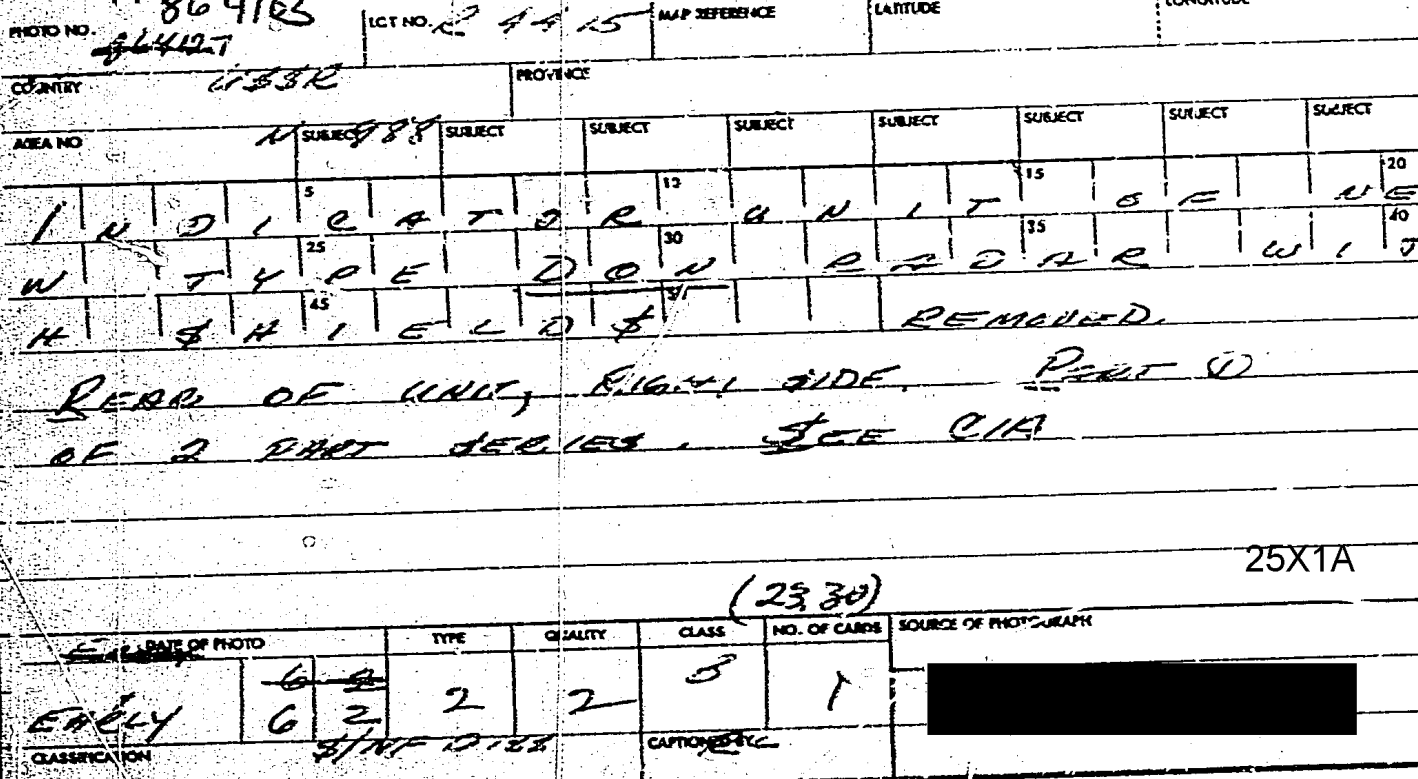 PHOTO NO. LCT NO. R 4415 MAP REFERENCE LATITUDE LONGITUDE
COUNTRY USSR PROVINCE
AREA NO N 988 SUBJECT SUBJECT SUBJECT SUBJECT SUBJECT SUBJECT SUBJECT SUBJECT
5 15 20
INDICATOR UNIT OF NE
25 30 35 40
W TYPE DON RADAR WIT
45
H SHIELDS REMOVED.
REAR OF UNIT, RIGHT SIDE. PART 1
OF 2 PART SERIES. SEE CIA
25X1A
(23,30)
DATE OF PHOTO TYPE QUALITY CLASS NO. OF CARDS SOURCE OF PHOTOGRAPH
EARLY 62 2 2 3 1
CLASSIFICATION S/NF DISS CAPTIONED BY